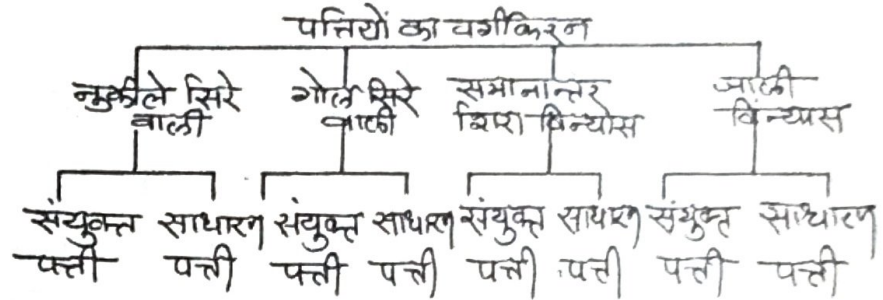 पत्तियों का वर्गीकरन
नुकीले सिरे वाली
गोल सिरे वाली
समानान्तर शिरा विन्यास
जाली विन्यास
संयुक्त पत्ती
साधारन पत्ती
संयुक्त पत्ती
साधारन पत्ती
संयुक्त पत्ती
साधारन पत्ती
संयुक्त पत्ती
साधारन पत्ती